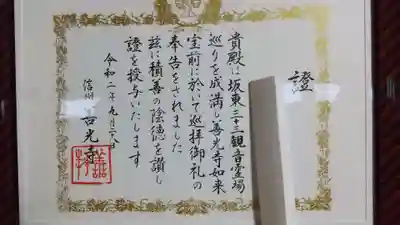 證
貴殿は坂東三十三観音霊場
巡りを成満し善光寺如来
宝前に於いて巡拝御礼の
奉告をされました
茲に積善の陰徳を讃し
證を授与いたします
令和二年九月
信州 善光寺